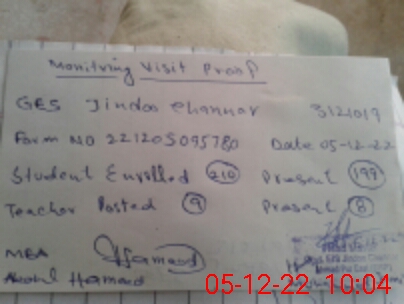 Monitring Visit Proof
GES Jindoo Channar 3121019
Form NO 221205095780 Date 05-12-22
Student Enrolled 210 Present 199
Teacher Posted 9 Present 8
MEA Hameed
Abdul Hameed
05-12-22 10:04